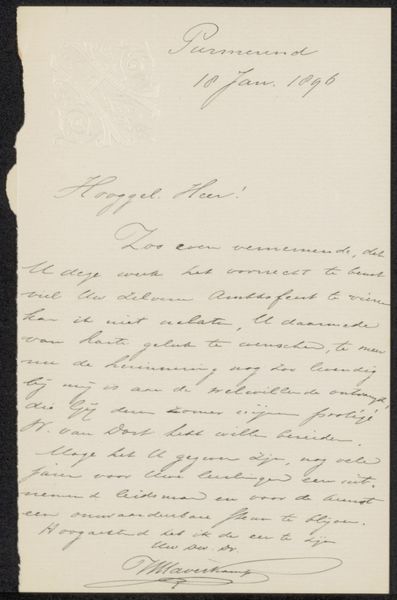 Purmerend
18 Jan. 1896
Hooggel. Heer!
Zoo even vernemende, dat
U deze week het voorrecht te beurt
viel Uw zilveren Ambtsfeest te vieren
kan ik niet nalaten, U daarmede
van harte geluk te wenschen, te meer
nu de herinnering nog zoo levendig
bij mij is aan de welwillende ontvangst
die Gij dezen zomer mijn protégé
W. van Dort hebt willen bereiden.
Moge het U gegeven zijn, nog vele
jaren voor Uwe leerlingen een uit-
nemend leidsman en voor de kunst
een onwaardeerbare steun te blijven.
Hoogachtend heb ik de eer te zijn
Uw Dw. Dr.
Haverkamp